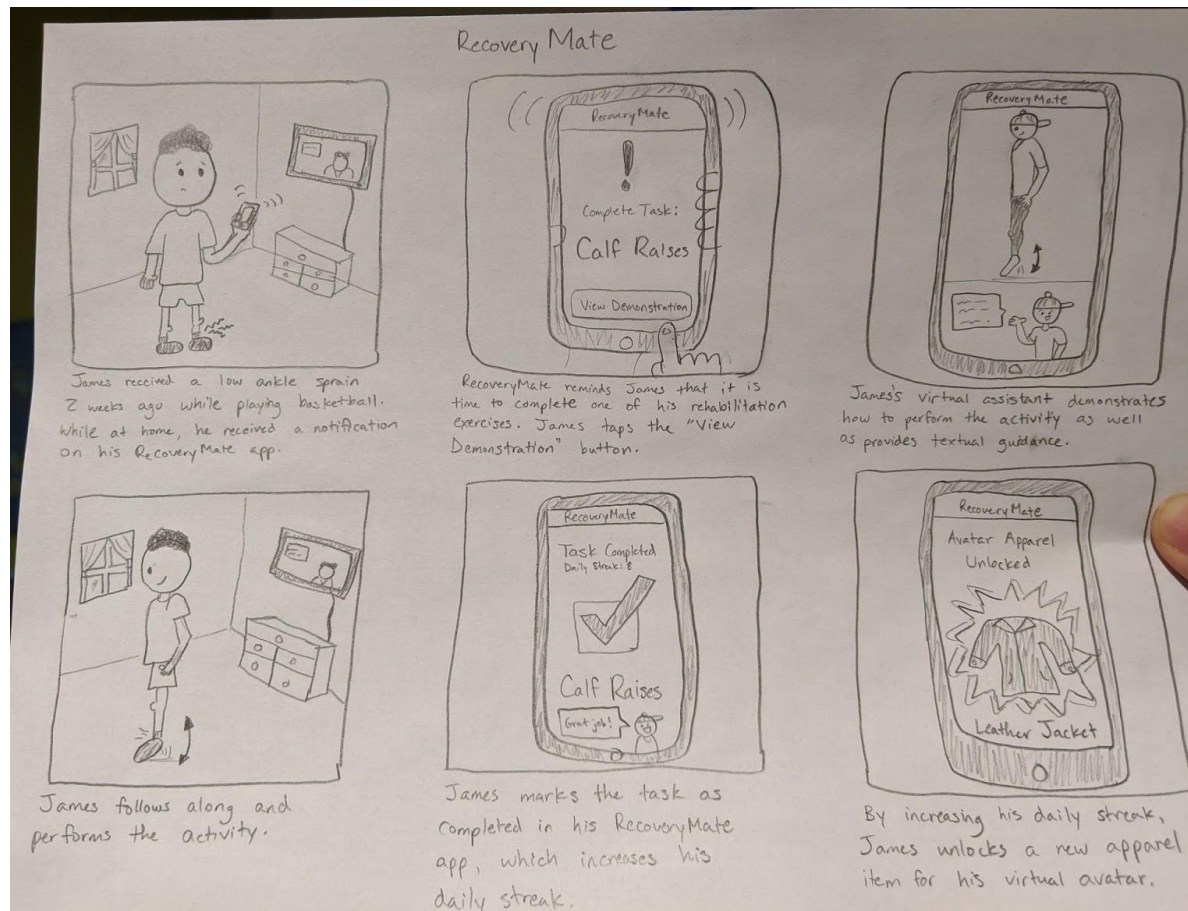 Recovery Mate
James received a low ankle sprain
2 weeks ago while playing basketball.
While at home, he received a notification
on his RecoveryMate app.
RecoveryMate
!
Complete Task:
Calf Raises
View Demonstration
RecoveryMate reminds James that it is
time to complete one of his rehabilitation
exercises. James taps the "View
Demonstration" button.
RecoveryMate
James's virtual assistant demonstrates
how to perform the activity as well
as provides textual guidance.
James follows along and
performs the activity.
RecoveryMate
Task Completed
Daily Streak: 8
Calf Raises
Great job!
James marks the task as
completed in his RecoveryMate
app, which increases his
daily streak.
RecoveryMate
Avatar Apparel
Unlocked
Leather Jacket
By increasing his daily streak,
James unlocks a new apparel
item for his virtual avatar.